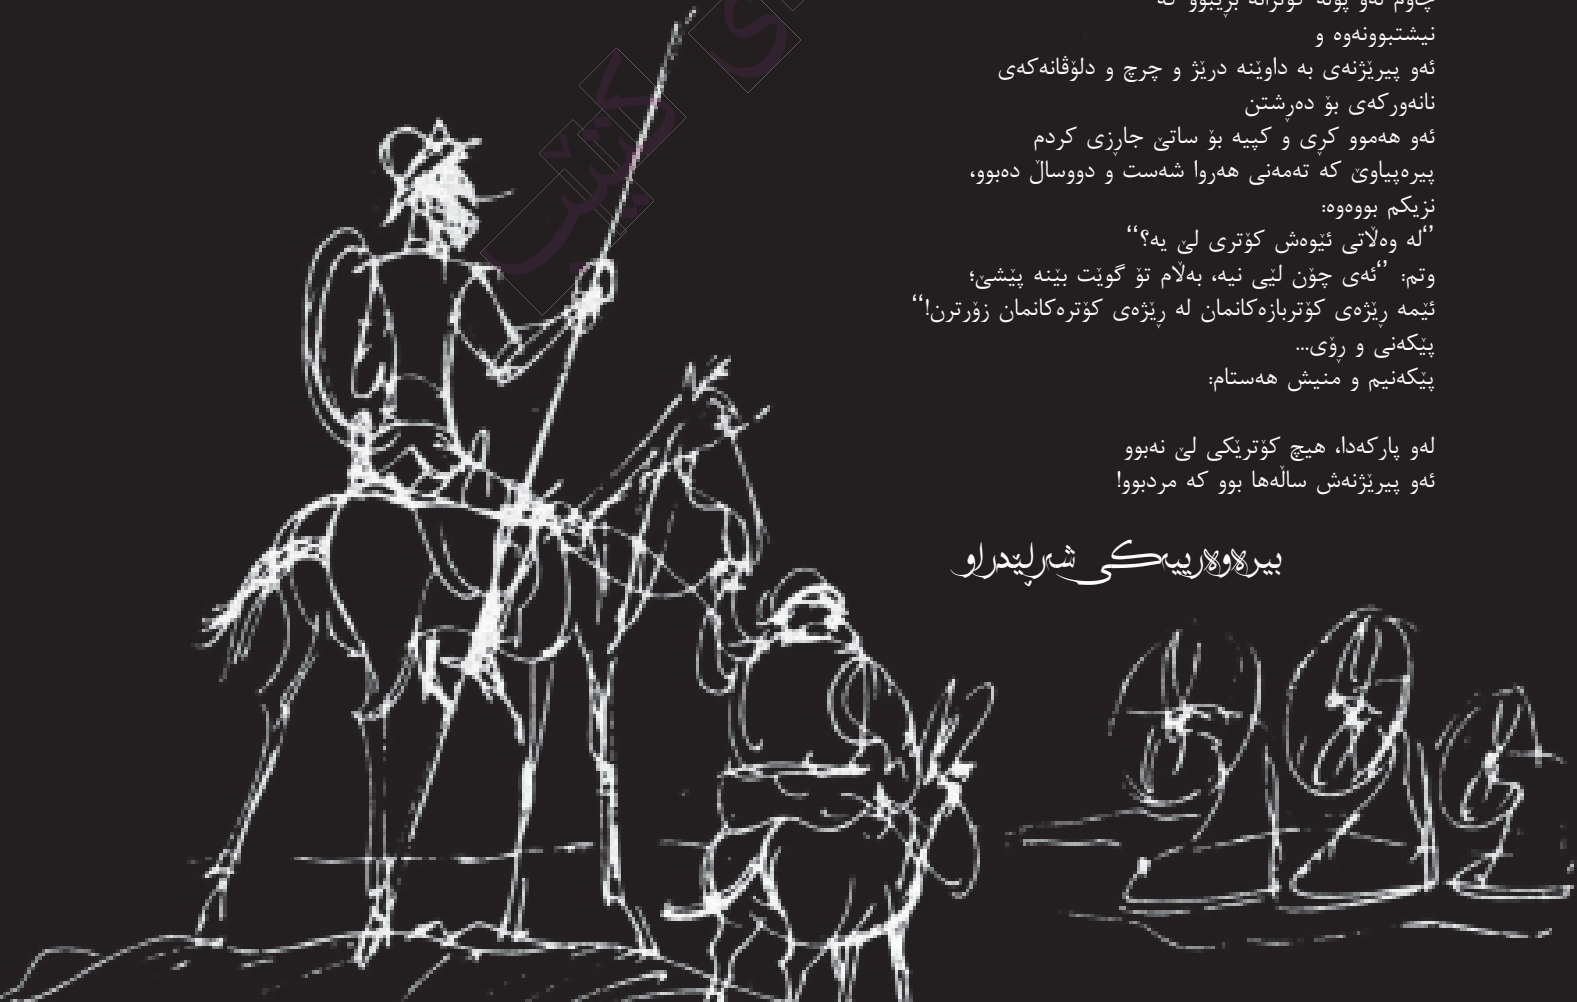 چاوم لەو پۆلە کۆترانە بڕیبوو کە
نیشتبوونەوە و
ئەو پیرێژنەی بە داوێنە درێژ و چرچ و دلۆڤانەکەی
نانەورکەی بۆ دەڕشتن
ئەو هەموو کڕی و کپیە بۆ ساتێ جاڕزی کردم
پیرەپیاوێ کە تەمەنی هەروا شەست و دووساڵ دەبوو،
نزیکم بووەوە:
“لە وەڵاتی ئێوەش کۆتری لێ یە؟“
وتم: “ئەی چۆن لێی نیە، بەڵام تۆ گوێت بێنە پێشێ؛
ئێمە ڕێژەی کۆتربازەکانمان لە ڕێژەی کۆترەکانمان زۆرترن!“
پێکەنی و ڕۆی...
پێکەنیم و منیش هەستام:
لەو پارکەدا، هیچ کۆترێکی لێ نەبوو
ئەو پیرێژنەش ساڵەها بوو کە مردبوو!
بیرەوەرییەکی شەڕلێدراو